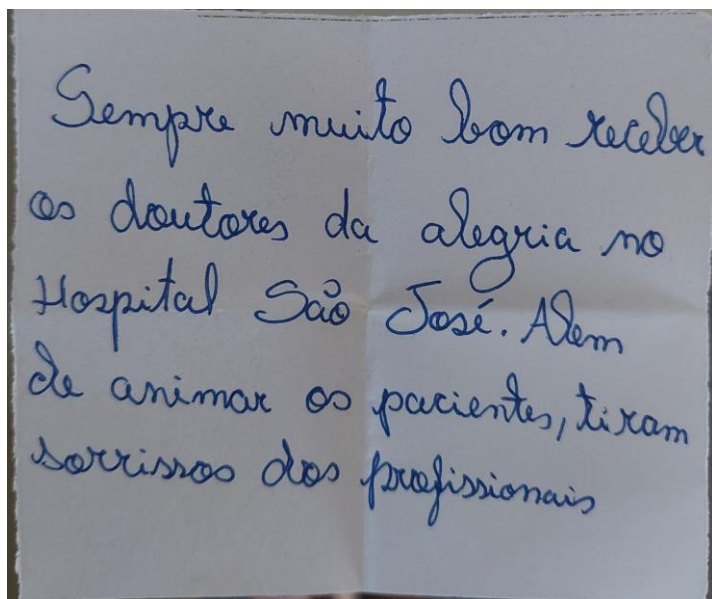 Sempre muito bom receber
os doutores da alegria no
Hospital São José. Alem
de animar os pacientes, tiram
sorrissos dos profissionais